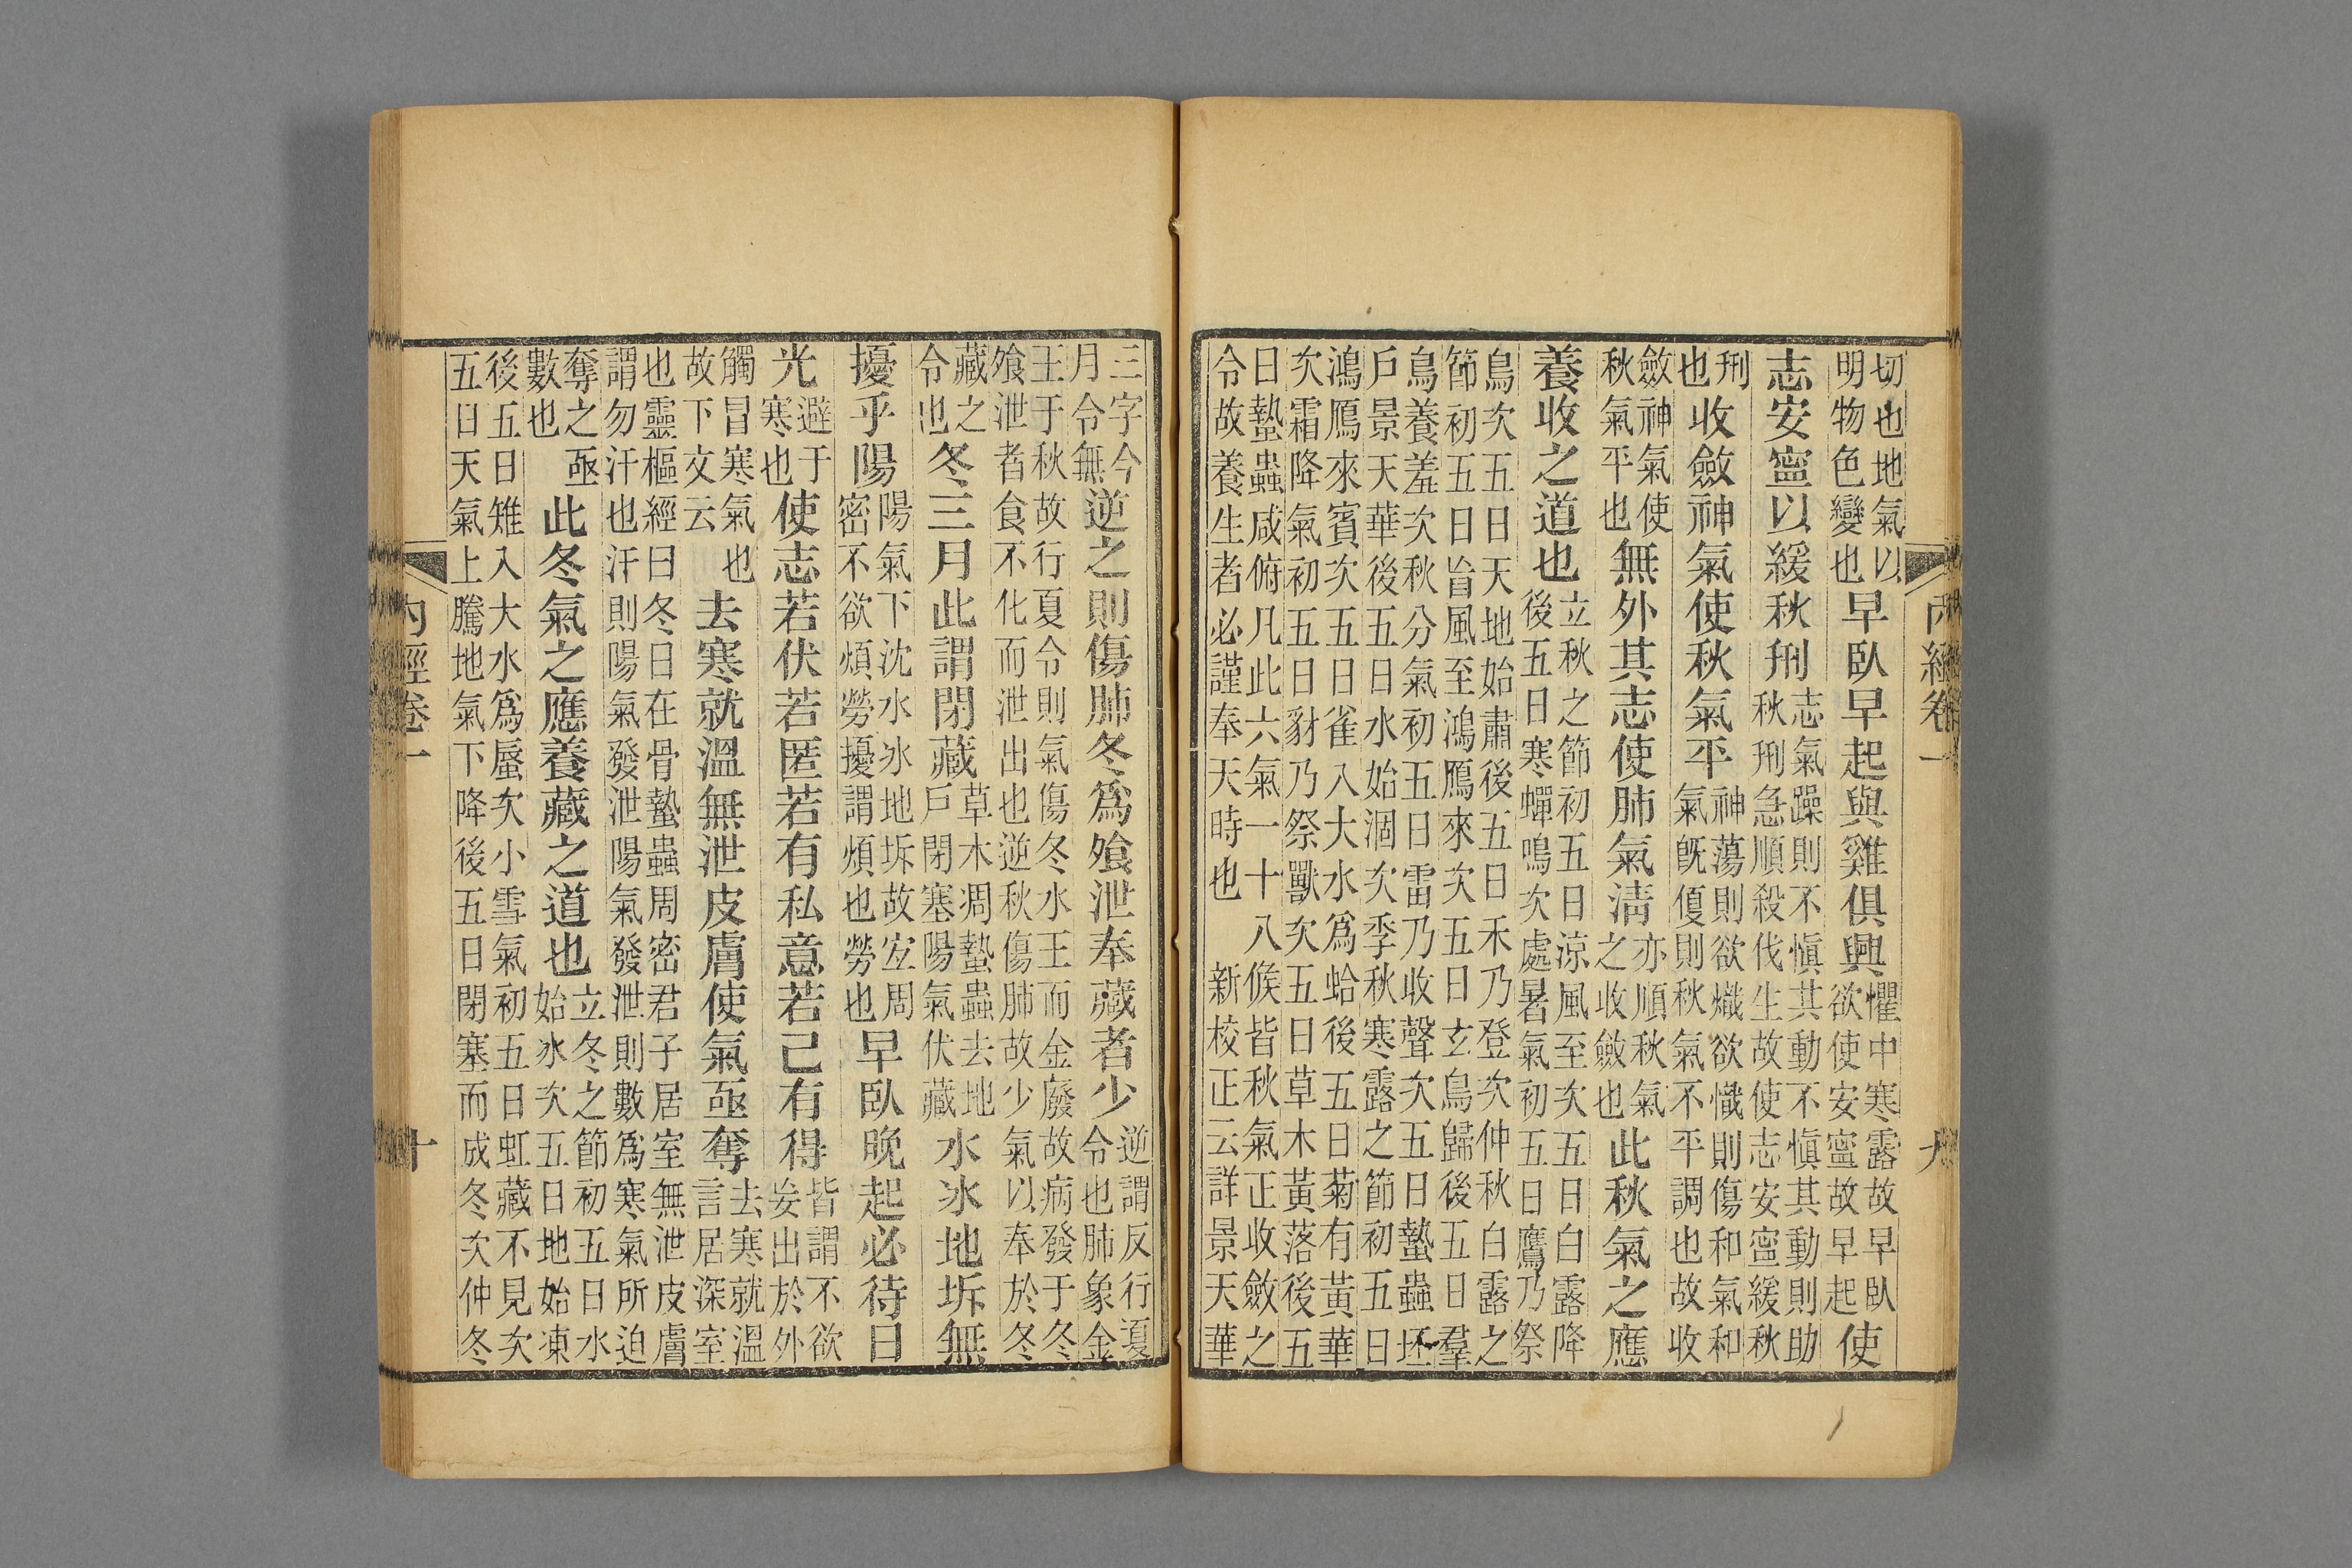 切也地氣以明物色變也早臥早起與雞俱興懼中寒露故早臥欲使安寍故早起使
志安寍以緩秋刑志氣躁則不愼其動不愼其動則助秋刑急順殺伐生故使志安寍緩秋
刑也收斂神氣使秋氣平神蕩則欲熾欲熾則傷和氣和氣旣傷則秋氣不平調也故收
斂神氣使秋氣平也無外其志使肺氣淸亦順秋氣之收斂也此秋氣之應
養收之道也立秋之節初五日涼風至次五日白露降後五日寒蟬鳴次處暑氣初五日鷹乃祭
鳥次五日天地始肅後五日禾乃登次仲秋白露之節初五日盲風至鴻鴈來次五日玄鳥歸後五日羣
鳥養羞次秋分氣初五日雷乃收聲次五日蟄蟲坯戶景天華後五日水始涸次季秋寒露之節初五日
鴻鴈來賓次五日雀入大水爲蛤後五日菊有黃華次霜降氣初五日豺乃祭獸次五日草木黃落後五
日蟄蟲咸俯凡此六氣一十八候皆秋氣正收斂之令故養生者必謹奉天時也 新校正云詳景天華
內經卷一 九
三字今月令無逆之則傷肺冬爲飧泄奉藏者少逆謂反行夏令也肺象金
王于秋故行夏令則氣傷冬水王而金廢故病發于冬飧泄者食不化而泄出也逆秋傷肺故少氣以奉於冬
藏之令也冬三月此謂閉藏草木凋蟄蟲去地戶閉塞陽氣伏藏水冰地坼無
擾乎陽陽氣下沈水冰地坼故宐周密不欲煩勞擾謂煩也勞也早臥晚起必待日
光避于寒也使志若伏若匿若有私意若已有得皆謂不欲妄出於外
觸冒寒氣也故下文云去寒就溫無泄皮膚使氣亟奪去寒就溫言居深室
也靈樞經曰冬日在骨蟄蟲周密君子居室無泄皮膚謂勿汗也汗則陽氣發泄陽氣發泄則數爲寒氣所迫
奪之亟數也此冬氣之應養藏之道也立冬之節初五日水始冰次五日地始凍
後五日雉入大水爲蜃次小雪氣初五日虹藏不見次五日天氣上騰地氣下降後五日閉塞而成冬次仲冬
內經卷一 十